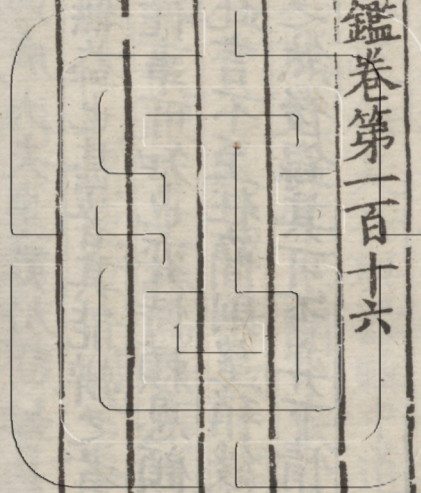 鑑卷第一百十六